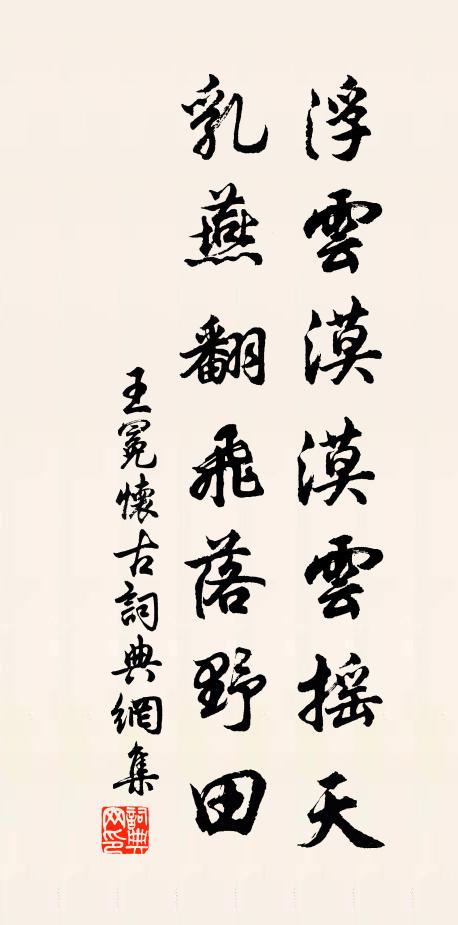 浮雲漠漠雲摇天
乳燕翻飛落野田
王冕懷古詞典網集
詞典网印